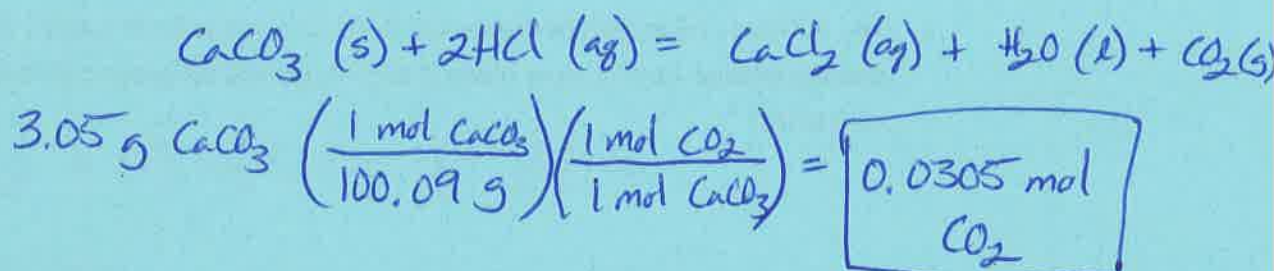 CaCO₃ (s) + 2HCl (aq) = CaCl₂ (aq) + H₂O (l) + CO₂(g)
3.05 g CaCO₃ (1 mol CaCO₃ / 100.09 g)(1 mol CO₂ / 1 mol CaCO₃) = 0.0305 mol CO₂